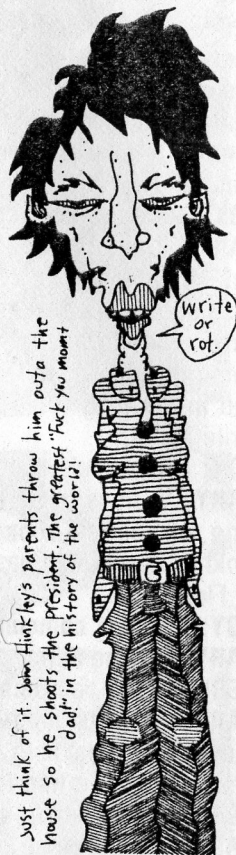 write
or
rot.
Just think of it. John Hinkley's parents throw him outa the
house so he shoots the President. The greatest "Fuck you mom+
dad!" in the history of the world!